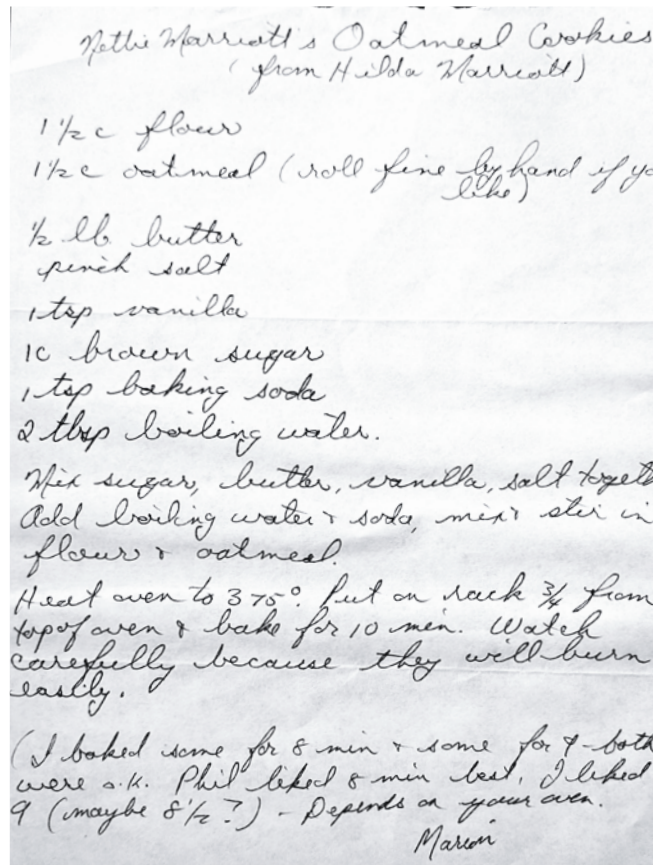 Nettie Marriott's Oatmeal Cookies
(from Hilda Marriott)
1 1/2 c flour
1 1/2 c oatmeal (roll fine by hand if yo
like)
1/2 lb. butter
pinch salt
1 tsp vanilla
1c brown sugar
1 tsp baking soda
2 tbsp boiling water.
Mix sugar, butter, vanilla, salt togeth
Add boiling water & soda, mix & stir in
flour & oatmeal.
Heat oven to 375°. Put on rack 3/4 from
top of oven & bake for 10 min. Watch
carefully because they will burn
easily.
(I baked some for 8 min & some for 9 - both
were o.k. Phil liked 8 min best, I liked
9 (maybe 8 1/2?) - Depends on your oven.
Marion